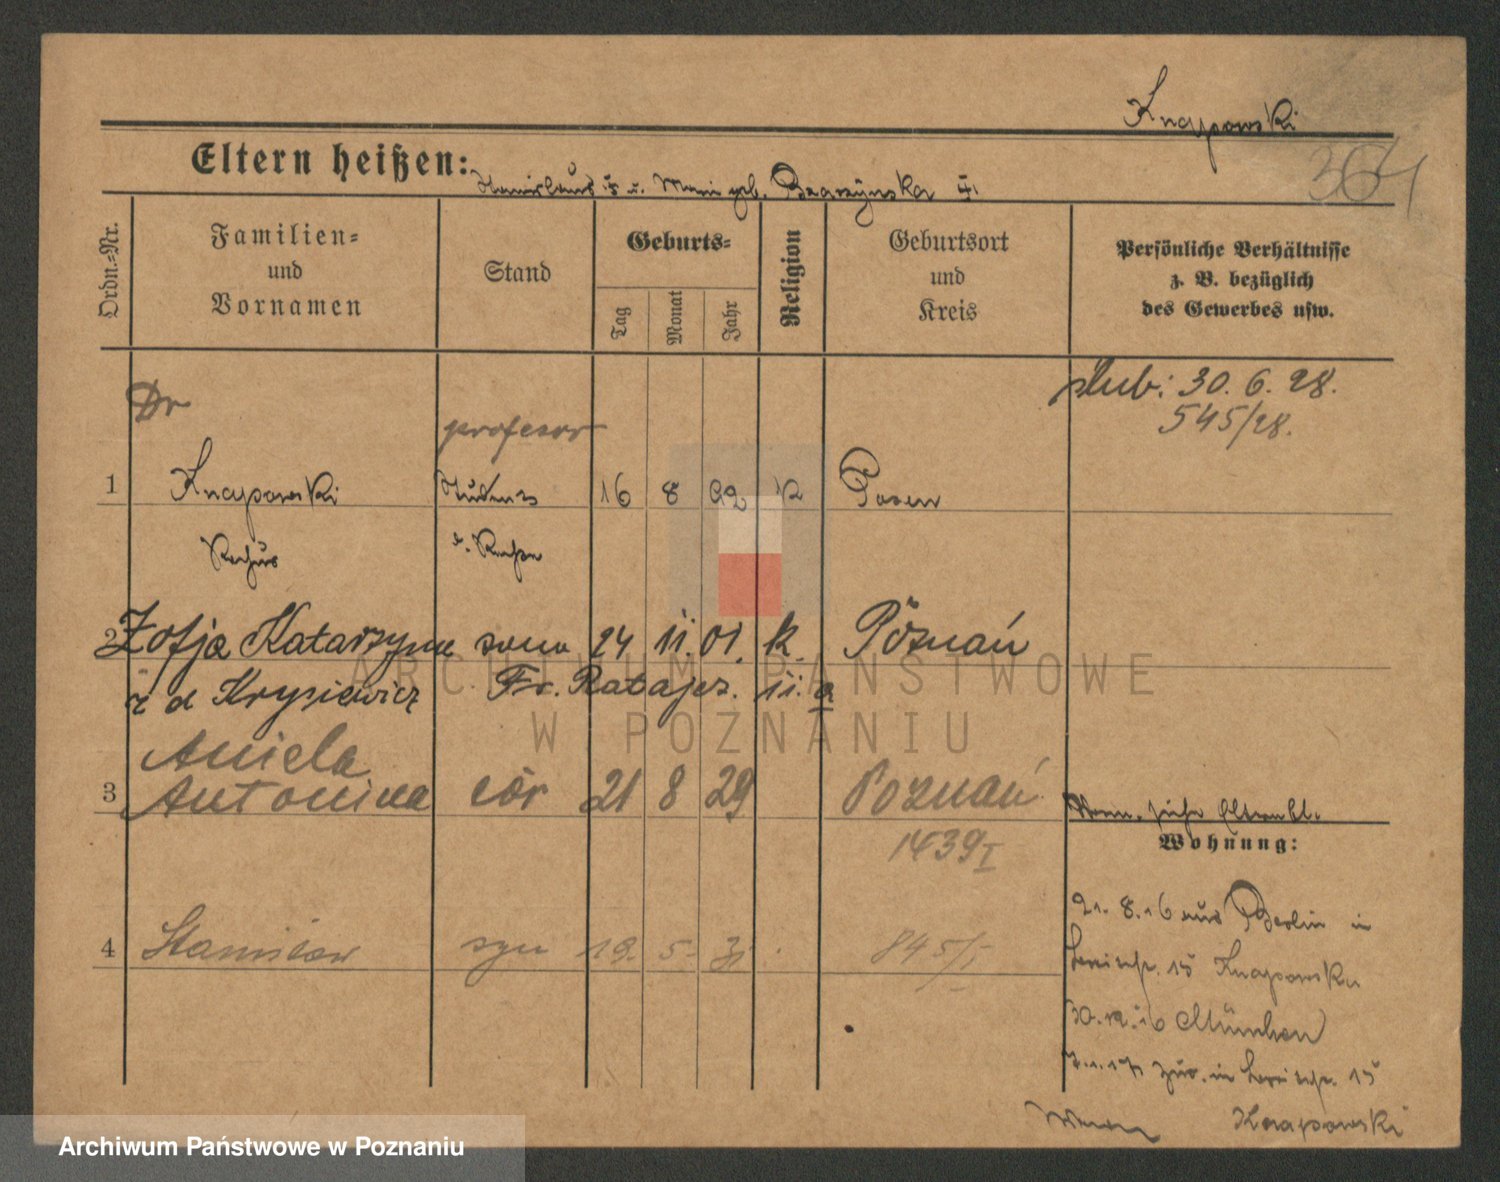 Knapowski
364
Eltern heißen: Stanislaus u. Marie geb.
Ordn.-Nr.
Familien-
und
Vornamen
Stand
Geburts-
Tag
Monat
Jahr
Religion
Geburtsort
und
Kreis
Persönliche Verhältnisse
z. B. bezüglich
des Gewerbes usw.
Dr
profesor
ślub: 30. 6. 28.
545/28.
1 Knapowski 16 8 92 k Posen
Rochus
2 Zofja Katarzyna żona 24 11 01. k. Poznań
z d Krysiewicz Fr. Ratajcz. 11. a
Aniela
3 Antonina cór 21 8 29 Poznań
1439 I
Wohnung:
4 Stanisław syn 19. 5. 31 845/I
21. 8. 16 aus Berlin in
15 Knapowska
30. 12. 16 München
7. 1. 17 zur. in 15
Knapowski
ARCHIWUM PAŃSTWOWE
W POZNANIU
Archiwum Państwowe w Poznaniu